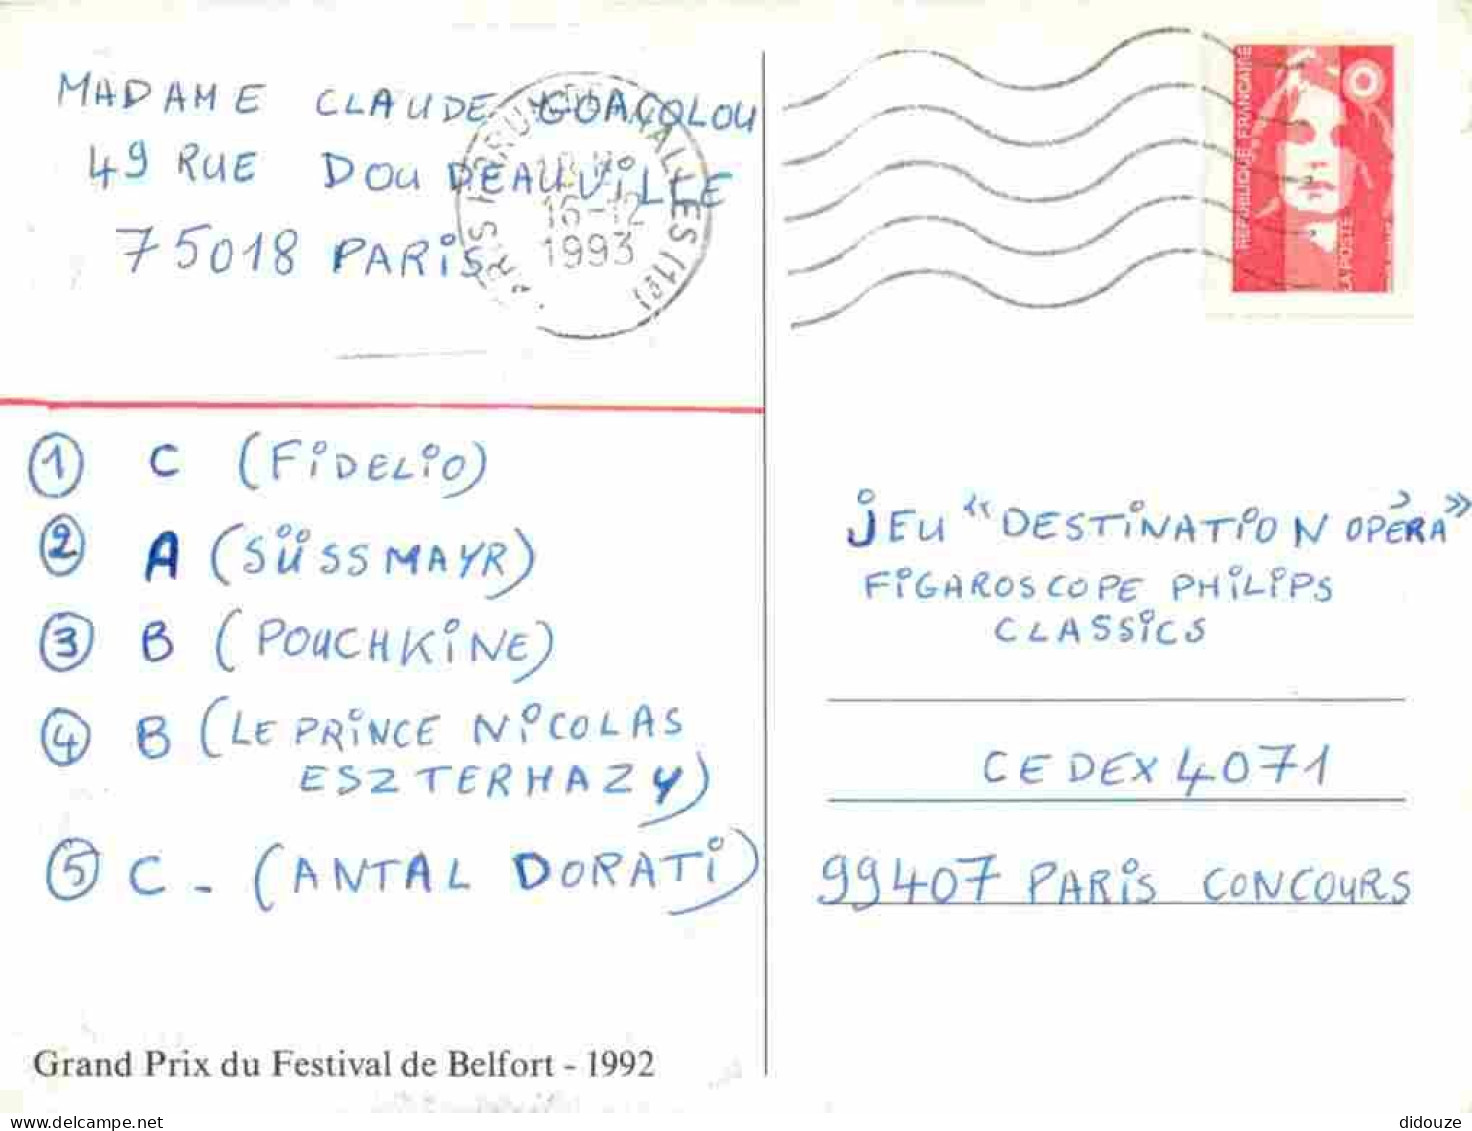 MADAME CLAUDE GOACOLOU
49 RUE DOUDEAUVILLE
75018 PARIS
16-12
1993
REPUBLIQUE FRANCAISE
LA POSTE
① C (FIDELIO)
② A (SÜSSMAYR)
③ B (POUCHKINE)
④ B (LE PRINCE NICOLAS
ESZTERHAZY)
⑤ C - (ANTAL DORATI)
Grand Prix du Festival de Belfort - 1992
JEU "DESTINATION OPÉRA"
FIGAROSCOPE PHILIPS
CLASSICS
CEDEX 4071
99407 PARIS CONCOURS
didouze